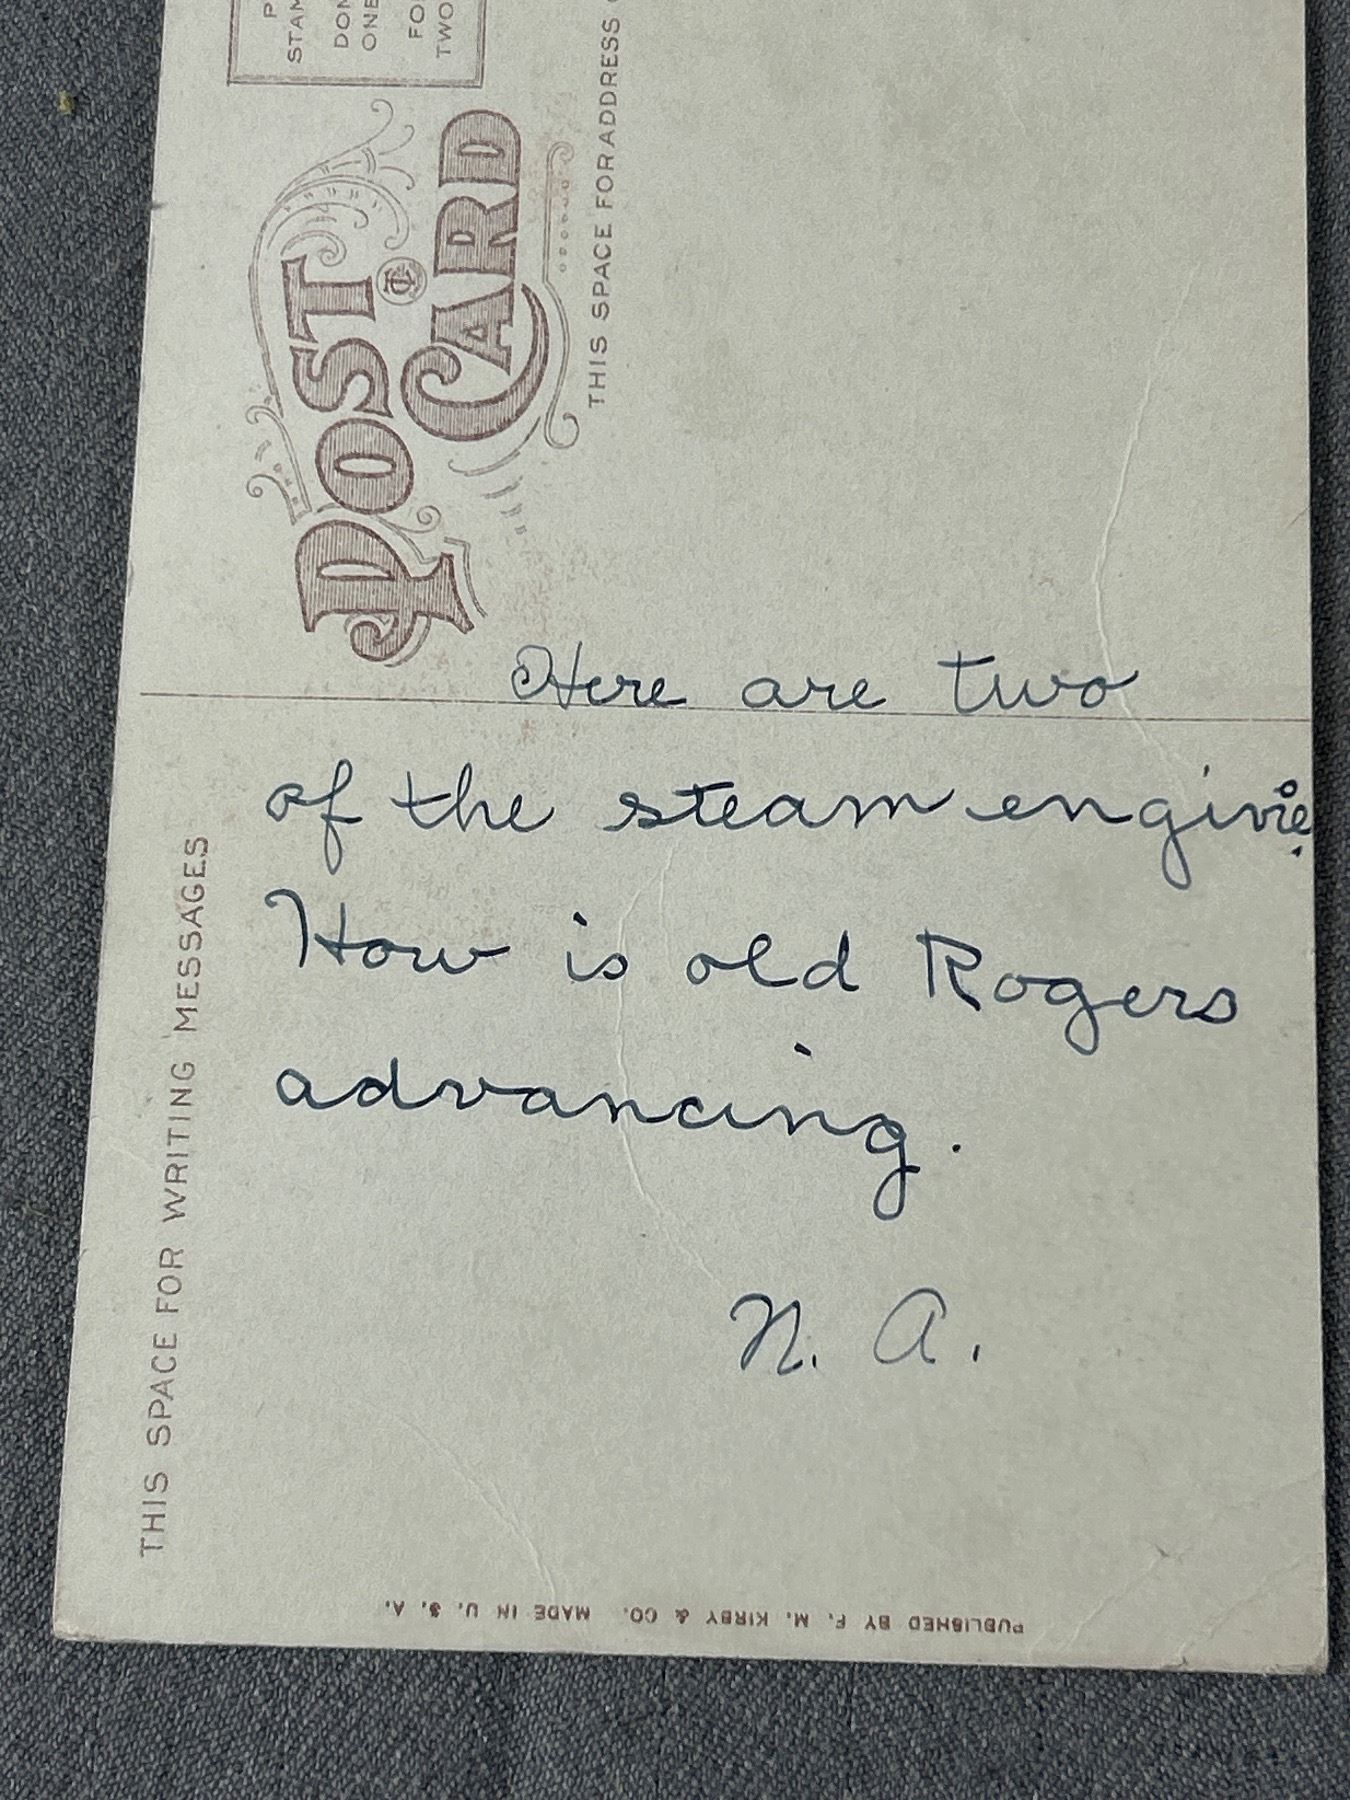 P
STAM
DOM
ONE
FO
TWO
POST CARD
THIS SPACE FOR ADDRESS
Here are two
of the steam engines.
How is old Rogers
advancing.
N. A.
THIS SPACE FOR WRITING MESSAGES
PUBLISHED BY F. M. KIRBY & CO. MADE IN U. S. A.